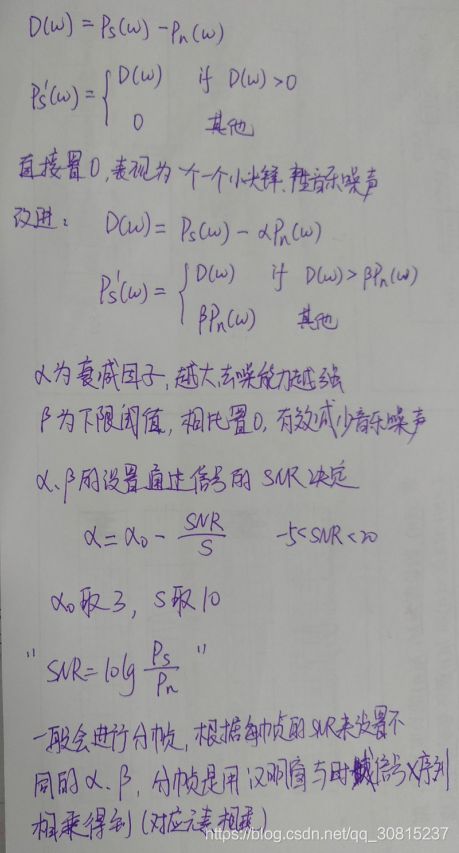 D(w) = Ps(w) - Pn(w)
Ps'(w) = { D(w) if D(w) > 0
0 其他
直接置0, 表现为一个一个小尖锋, 音乐噪声
改进: D(w) = Ps(w) - αPn(w)
Ps'(w) = { D(w) if D(w) > βPn(w)
βPn(w) 其他
α为衰减因子, 越大去噪能力越强
β为下限阈值, 相比置0, 有效减少音乐噪声
α、β的设置通过信号的 SNR 决定
α = α0 - SNR/S -5<SNR<20
α0取3, S取10
" SNR = 10lg Ps/Pn "
一般会进行分帧, 根据每帧的SNR来设置不
同的α、β, 分帧是用汉明窗与时域信号x序列
相乘得到(对应元素相乘)
https://blog.csdn.net/qq_30815237